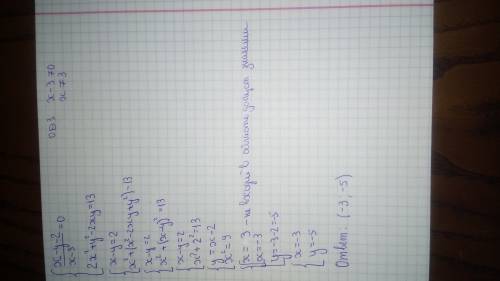 x-y-2 / x-3 = 0 ОДЗ x-3≠0
2x²+y²-2xy=13 x≠3
x-y=2
x²+(x²-2xy+y²)=13
x-y=2
x²+(x-y)²=13
x-y=2
x²+2²=13
y=x-2
x²=9
x=3 - не входит в области допуст значения
x=-3
y=-3-2=-5
x=-3
y=-5
Ответ: (-3, -5)